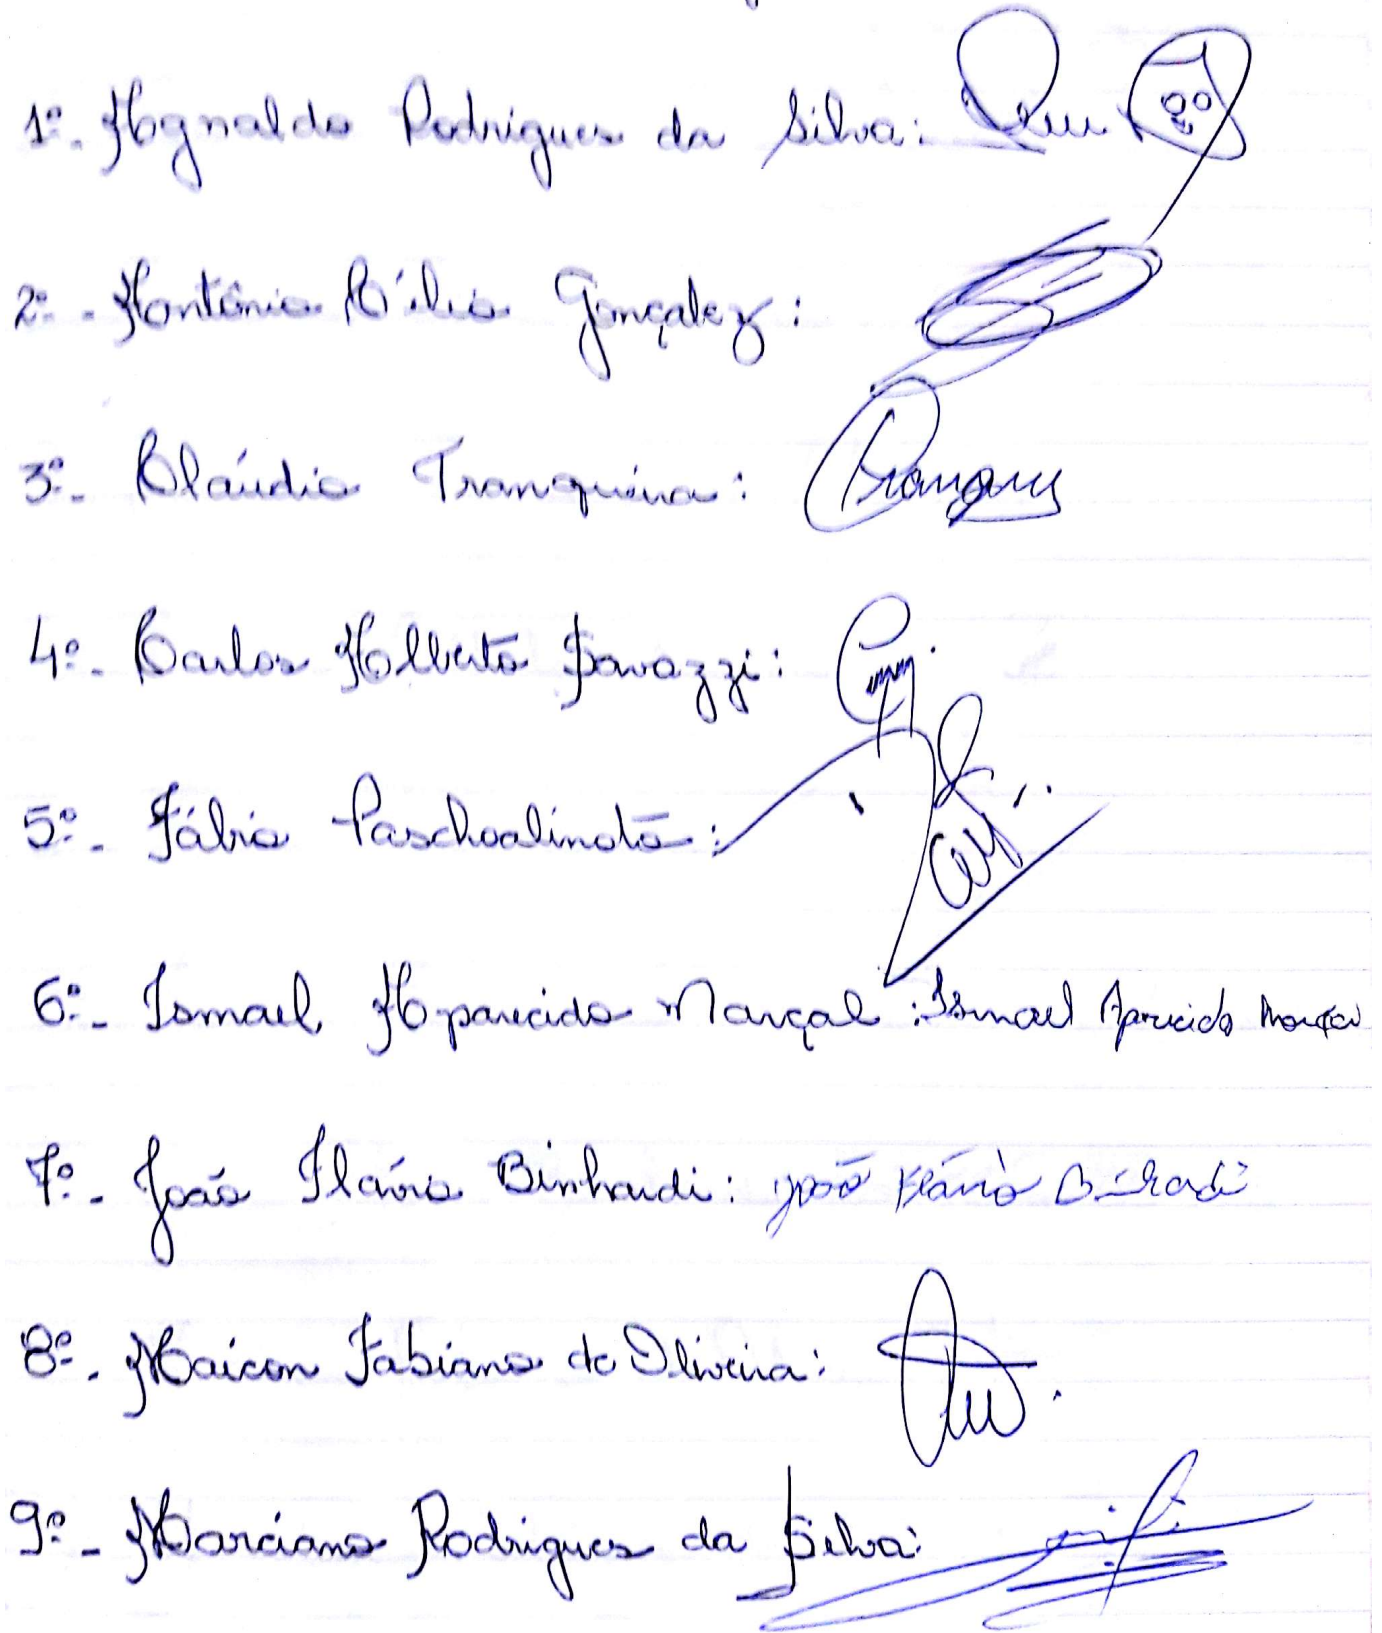 1º- Agnaldo Rodrigues da Silva:
2º- Antônio Célio Gonçalez:
3º- Cláudio Tranqueira:
4º- Carlos Alberto Savazzi:
5º- Fábio Paschoalinoto:
6º- Ismael Aparecido Marçal: Ismael Aparecido Marçal
7º- João Flávio Binhardi: João Flávio
8º- Maicon Fabiano de Oliveira:
9º- Marciano Rodrigues da Silva: